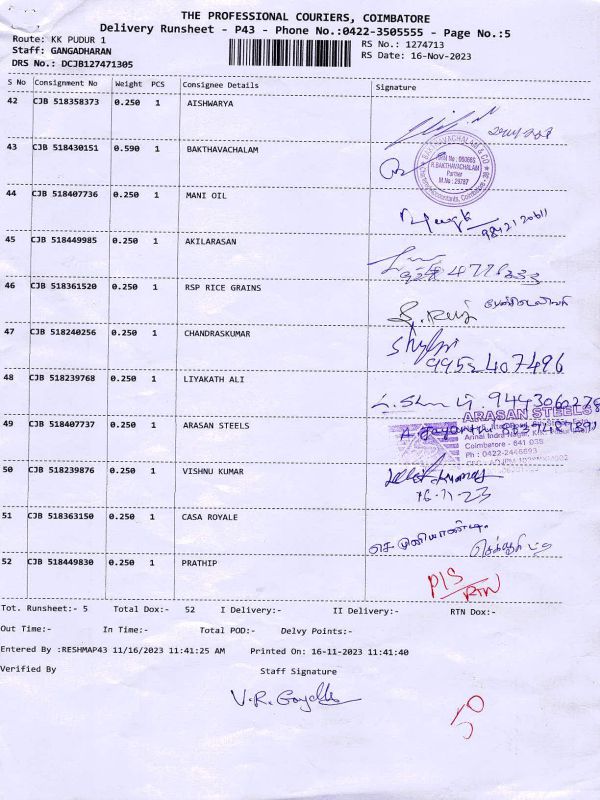 THE PROFESSIONAL COURIERS, COIMBATORE
Delivery Runsheet - P43 - Phone No.:0422-3505555 - Page No.:5
Route: KK PUDUR 1
RS No.: 1274713
Staff: GANGADHARAN
RS Date: 16-Nov-2023
DRS No.: DCJB127471305
S No Consignment No Weight PCS Consignee Details Signature
42 CJB 518358373 0.250 1 AISHWARYA
43 CJB 518430151 0.590 1 BAKTHAVACHALAM
BAKTHAVACHALAM & CO
R.BAKTHAVACHALAM
Partner
M.No : 29787
Chartered Accountants, Coimbatore
44 CJB 518407736 0.250 1 MANI OIL
45 CJB 518449985 0.250 1 AKILARASAN
46 CJB 518361520 0.250 1 RSP RICE GRAINS
47 CJB 518240256 0.250 1 CHANDRASKUMAR
9952407496
48 CJB 518239768 0.250 1 LIYAKATH ALI
49 CJB 518407737 0.250 1 ARASAN STEELS
ARASAN STEELS
Coimbatore - 641 038
Ph : 0422-2446693
50 CJB 518239876 0.250 1 VISHNU KUMAR
16-11-23
51 CJB 518363150 0.250 1 CASA ROYALE
52 CJB 518449830 0.250 1 PRATHIP
P/S
RTN
Tot. Runsheet:- 5 Total Dox:- 52 I Delivery:- II Delivery:- RTN Dox:-
Out Time:- In Time:- Total POD:- Delvy Points:-
Entered By :RESHMAP43 11/16/2023 11:41:25 AM Printed On: 16-11-2023 11:41:40
Verified By Staff Signature
50